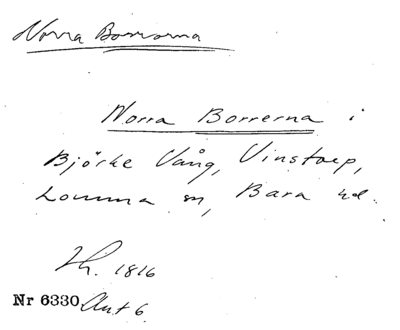 Norra Borrarna
Norra Borrerna i
Björke Vång, Vinstorp,
Lomma sn, Bara hd.
Th. 1816
Nr 6330 Akt 6